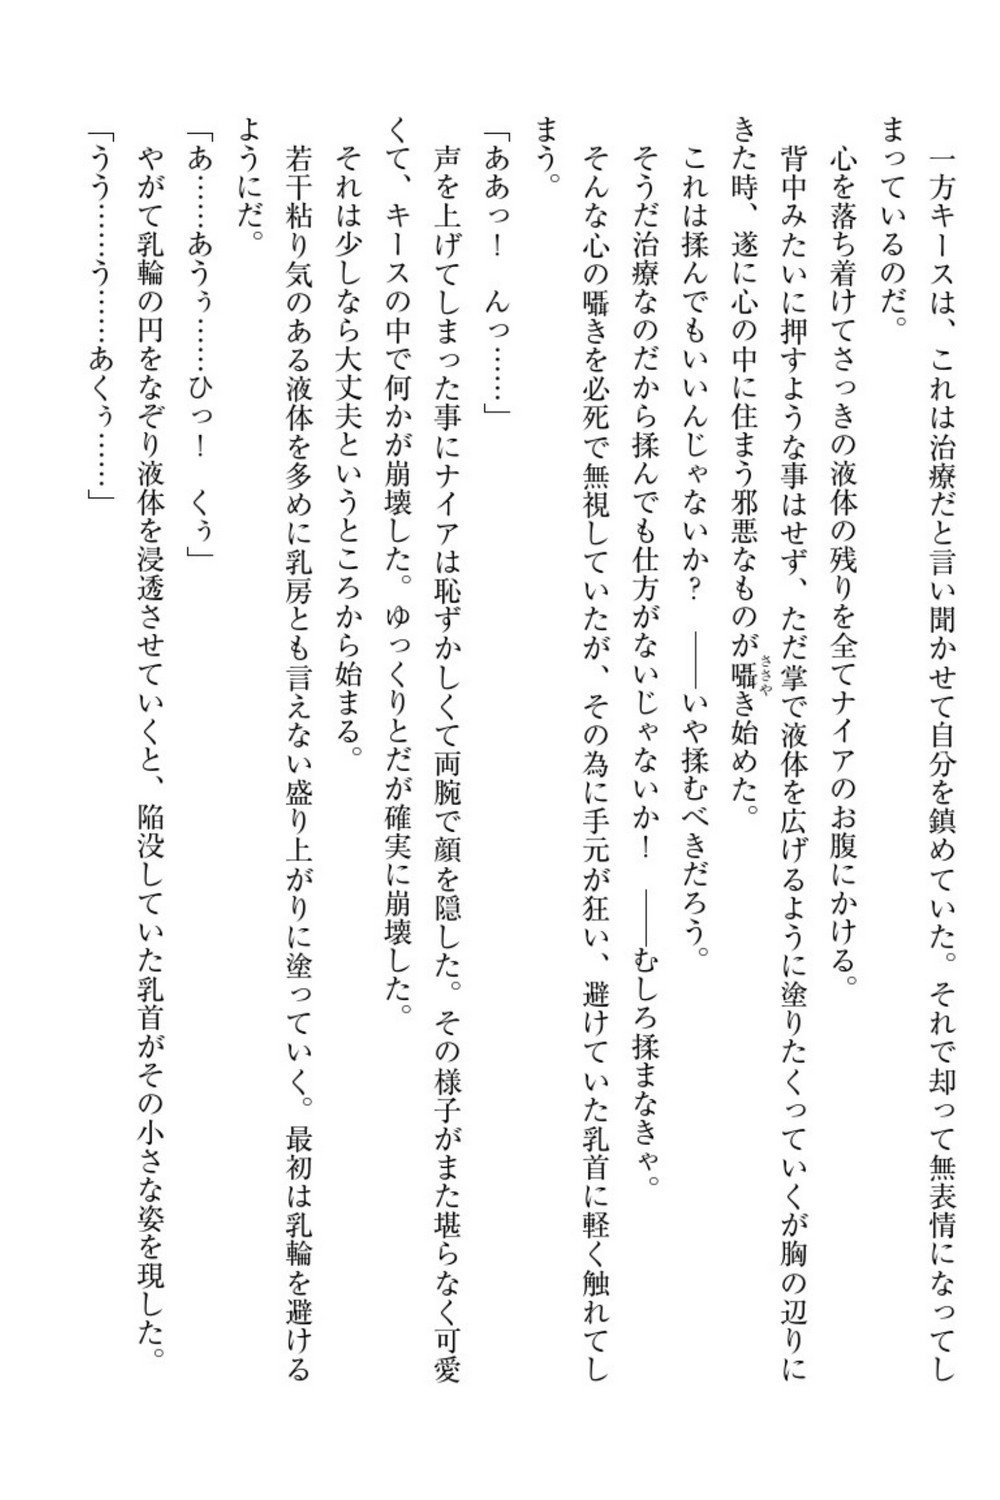 一方キースは、これは治療だと言い聞かせて自分を鎮めていた。それで却って無表情になってし
まっているのだ。
心を落ち着けてさっきの液体の残りを全てナイアのお腹にかける。
背中みたいに押すような事はせず、ただ掌で液体を広げるように塗りたくっていくが胸の辺りに
きた時、遂に心の中に住まう邪悪なものが囁き始めた。
ささや
これは揉んでもいいんじゃないか？　――いや揉むべきだろう。
そうだ治療なのだから揉んでも仕方がないじゃないか！　――むしろ揉まなきゃ。
そんな心の囁きを必死で無視していたが、その為に手元が狂い、避けていた乳首に軽く触れてし
まう。
「ああっ！　んっ……」
声を上げてしまった事にナイアは恥ずかしくて両腕で顔を隠した。その様子がまた堪らなく可愛
くて、キースの中で何かが崩壊した。ゆっくりとだが確実に崩壊した。
それは少しなら大丈夫というところから始まる。
若干粘り気のある液体を多めに乳房とも言えない盛り上がりに塗っていく。最初は乳輪を避ける
ようにだ。
「あ……あうぅ……ひっ！　くぅ」
やがて乳輪の円をなぞり液体を浸透させていくと、陥没していた乳首がその小さな姿を現した。
「うう……う……あくぅ……」